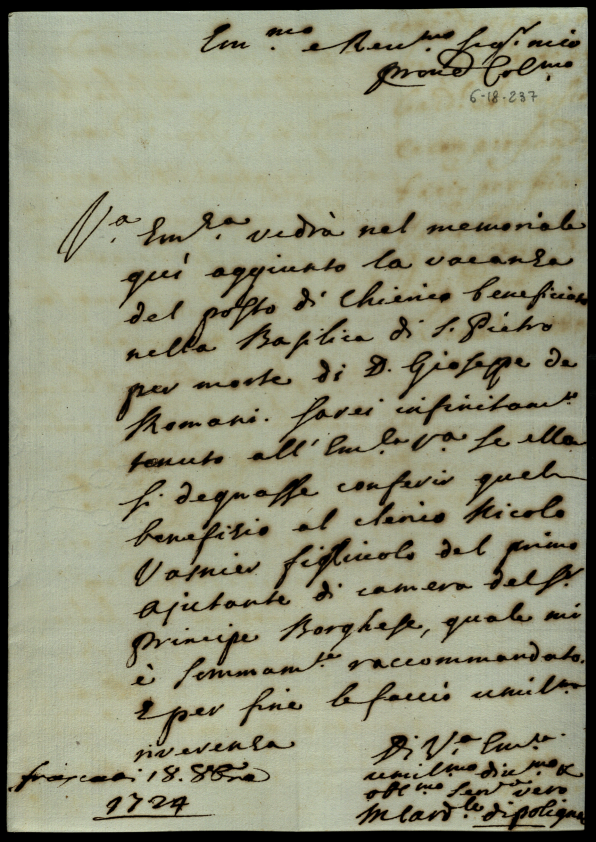 Em.mo e Reu.mo Sig.r mio
prone Col.mo
6-18-237
V.a Em.za vedrà nel memoriale
quì aggiunto la vacanza
del posto di Chierico beneficiato
nella Basilica di S. Pietro
per morte di D. Gioseppe de
Romani. Sarei infinitam.te
tenuto all'Em.za V.a se ella
si degnasse conferir quel
benefizio al clerico Nicolo
Vasnier figliuolo del primo
ajutante di camera del Sr.
Principe Borghese, quale mi
è sommam.te raccommandato.
E per fine le faccio umil.ma
riverenza
Di V.a Em.za
frascati 18. 8bre
umil.mo diu.mo &
1724
obl.mo Ser.re vero
M Card.le di polignac